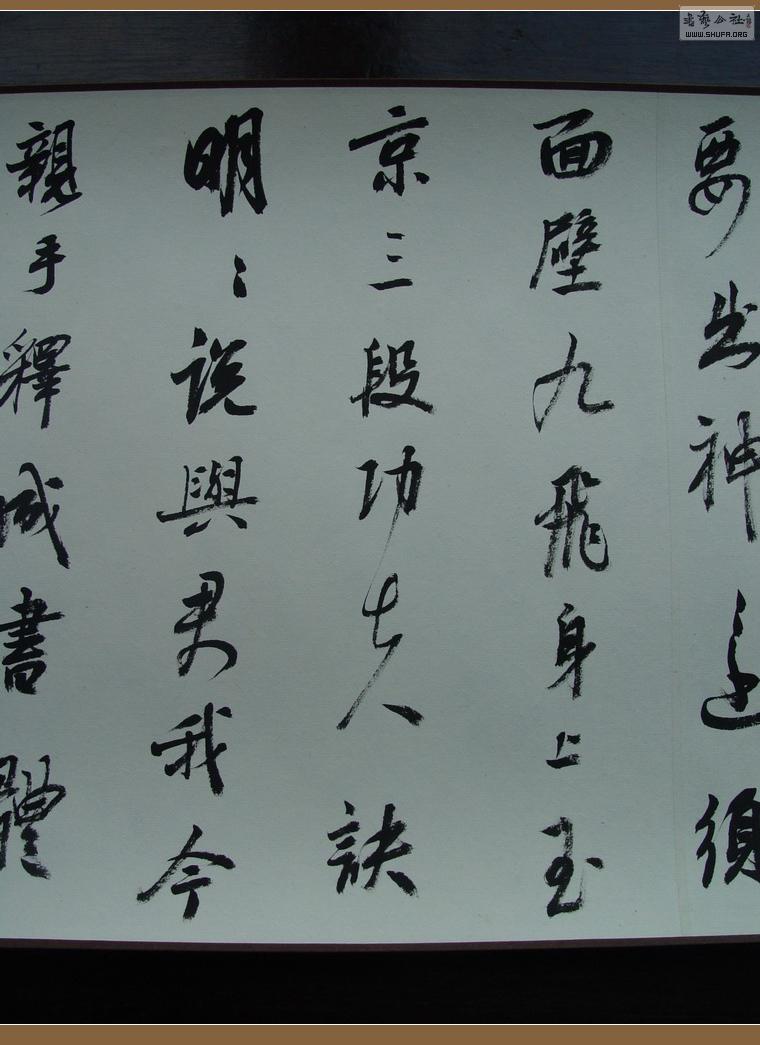 要出神迟须
面壁九飛身上玉
京三段功夫訣
明〻説與君我今
親手釋成書體
書藝公社
WWW.SHUFA.ORG